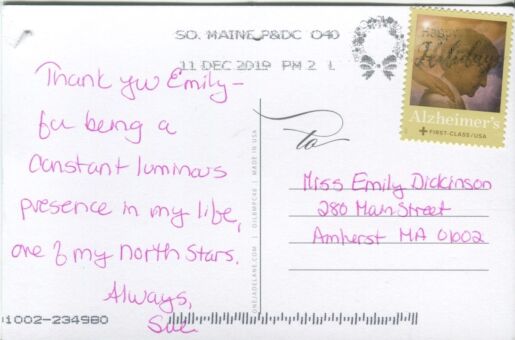 SO. MAINE P&DC 040
11 DEC 2019 PM 2 L
Happy
Holidays
Alzheimer's
+ FIRST-CLASS/USA
Thank you Emily–
for being a
constant luminous
presence in my life,
one of my North Stars.
Always,
Sue
to
Miss Emily Dickinson
280 Main Street
Amherst MA 01002
MADE IN USA
ONEJADELANE.COM
01002-234980